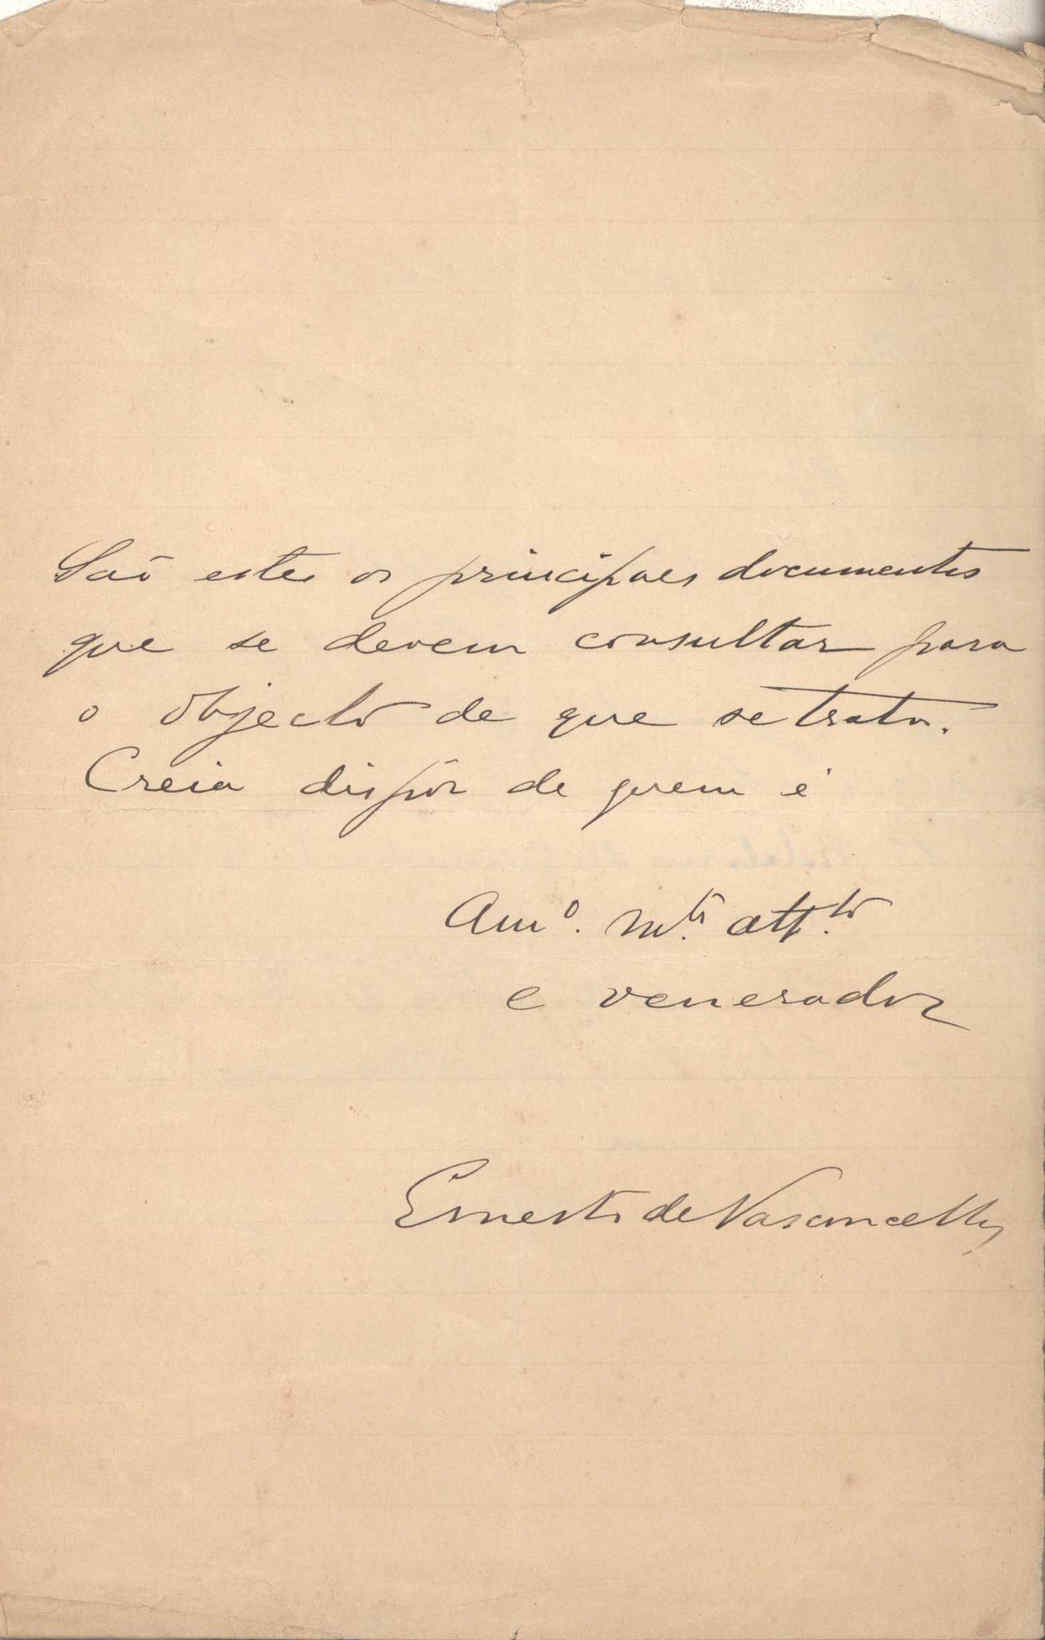 São estes os principaes documentos
que se devem consultar para
o objecto de que se trata.
Creia dispôr de quem é
Amº. Mtº. attº.
e venerador
Ernesto de Vasconcellos